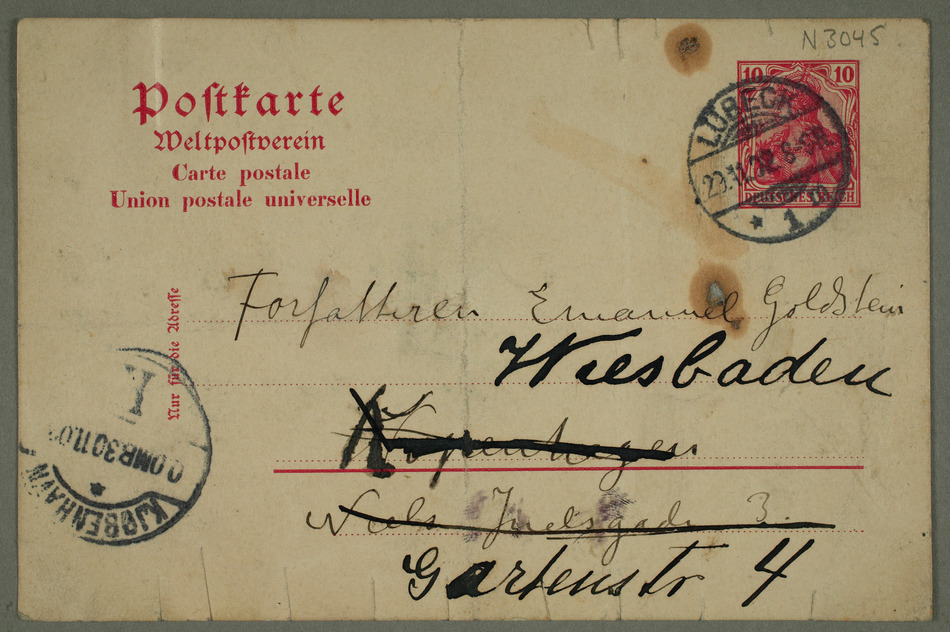 N3045
Postkarte
Weltpostverein
Carte postale
Union postale universelle
10 10
DEUTSCHES REICH
LÜBECK
* 1
Nur für die Adresse
Forfatteren Emanuel Goldstein
Wiesbaden
Kopenhagen
Niels Juelsgade 3.
Gartenstr 4
I
OMB 30.11.02
KJØBENHAVN